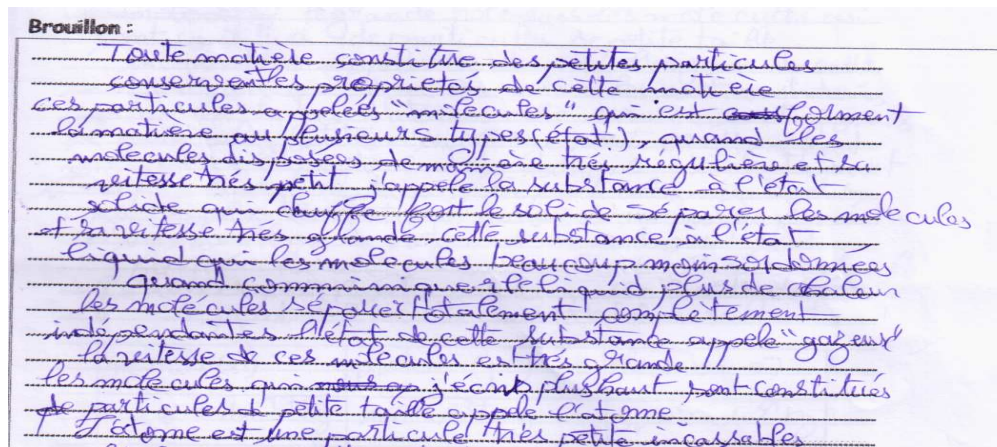 Brouillon :
Toute matière constitue des petites particules
conservent les proprietés de cette matière
ces particules appelées "molécules" qui est forment
la matière au plusieurs types (état), quand les
molecules disposées de manière très régulière et sa
vitesse très petit j'appele la substance à l'état
solide qui chuffe font le solide séparer les molecules
et sa vitesse très grande cette substance à l'état
liquid qui les molecules beaucoup moins ordonnées
Quand communiquer le liquid plus de chaleur
les molécules séparer totalement complètement
indépendantes l'état de cette substance appele "gazeux"
la vitesse de ces molecules est très grande
les molecules qui j'écris plus haut sont constitués
de particules d petite taille appele l'atome
J'atome est une particule très petite incassables